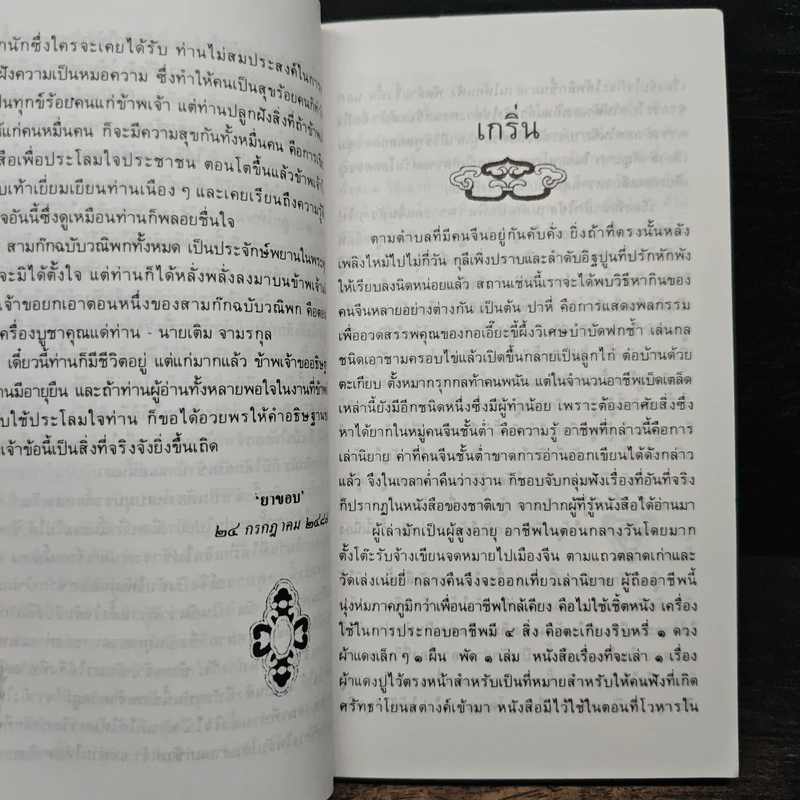 นักซึ่งใครจะเคยได้รับ ท่านไม่สมประสงค์ในการ
ฝังความเป็นหมอความ ซึ่งทำให้คนเป็นสุขร้อยคนก็
ป็นทุกข์ร้อยคนแก่ข้าพเจ้า แต่ท่านปลูกฝังสิ่งที่ถ้าข้าพ
ด้แก่คนหมื่นคน ก็จะมีความสุขกันทั้งหมื่นคน คือการ
สือเพื่อประโลมใจประชาชน ตอนโตขึ้นแล้วข้าพเจ้า
บเท้าเยี่ยมเยียนท่านเนือง ๆ และเคยเรียนถึงความรู้
จอันนี้ซึ่งดูเหมือนท่านก็พลอยชื่นใจ
สามก๊กฉบับวณิพกทั้งหมด เป็นประจักษ์พยานในพระคุ
จะมิได้ตั้งใจ แต่ท่านก็ได้หลั่งพลั่งลงมาบนข้าพเจ้า
เจ้าขอยกเอาตอนหนึ่งของสามก๊กฉบับวณิพก คือตอ
ครื่องบูชาคุณแด่ท่าน - นายเติม จามรกุล
เดี๋ยวนี้ท่านก็มีชีวิตอยู่ แต่แก่มากแล้ว ข้าพเจ้าขออธิษฐ
านมีอายุยืน และถ้าท่านผู้อ่านทั้งหลายพอใจในงานที่ข้าพ
บใช้ประโลมใจท่าน ก็ขอได้อวยพรให้คำอธิษฐาน
เจ้าข้อนี้เป็นสิ่งที่จริงจังยิ่งขึ้นเถิด
'ยาขอบ'
๒๔ กรกฎาคม ๒๔๘
เกริ่น
ตามตำบลที่มีคนจีนอยู่กันคับคั่ง ยิ่งถ้าที่ตรงนั้นหลัง
เพลิงไหม้ไปไม่กี่วัน กุลีเพิงปราบและลำดับอิฐปูนที่ปรักหักพัง
ให้เรียบลงนิดหน่อยแล้ว สถานเช่นนี้เราจะได้พบวิธีหากินของ
คนจีนหลายอย่างต่างกัน เป็นต้น ปาหี่ คือการแสดงพลกรรม
เพื่ออวดสรรพคุณของกอเอี๊ยะขี้ผึ้งวิเศษบำบัดฟกช้ำ เล่นกล
ชนิดเอาชามครอบไข่แล้วเปิดขึ้นกลายเป็นลูกไก่ ต่อบ้านด้วย
ตะเกียบ ตั้งหมากรุกกลท้าคนพนัน แต่ในจำนวนอาชีพเบ็ดเตล็ด
เหล่านี้ยังมีอีกชนิดหนึ่งซึ่งมีผู้ทำน้อย เพราะต้องอาศัยสิ่งซึ่ง
หาได้ยากในหมู่คนจีนชั้นต่ำ คือความรู้ อาชีพที่กล่าวนี้คือการ
เล่านิยาย ค่าที่คนจีนชั้นต่ำขาดการอ่านออกเขียนได้ดังกล่าว
แล้ว จึงในเวลาค่ำคืนว่างงาน ก็ชอบจับกลุ่มฟังเรื่องที่อันที่จริง
ก็ปรากฏในหนังสือของชาติเขา จากปากผู้ที่รู้หนังสือได้อ่านมา
ผู้เล่ามักเป็นผู้สูงอายุ อาชีพในตอนกลางวันโดยมาก
ตั้งโต๊ะรับจ้างเขียนจดหมายไปเมืองจีน ตามแถวตลาดเก่าและ
วัดเล่งเน่ยยี่ กลางคืนจึงจะออกเที่ยวเล่านิยาย ผู้ถืออาชีพนี้
นุ่งห่มภาคภูมิกว่าเพื่อนอาชีพใกล้เคียง คือไม่ใช้เชิ้ตหนัง เครื่อง
ใช้ในการประกอบอาชีพมี ๔ สิ่ง คือตะเกียงริบหรี่ ๑ ดวง
ผ้าแดงเล็ก ๆ ๑ ผืน พัด ๑ เล่ม หนังสือเรื่องที่จะเล่า ๑ เรื่อง
ผ้าแดงปูไว้ตรงหน้าสำหรับเป็นที่หมายสำหรับให้คนฟังที่เกิด
ศรัทธาโยนสตางค์เข้ามา หนังสือมีไว้ใช้ในตอนที่โวหารใน